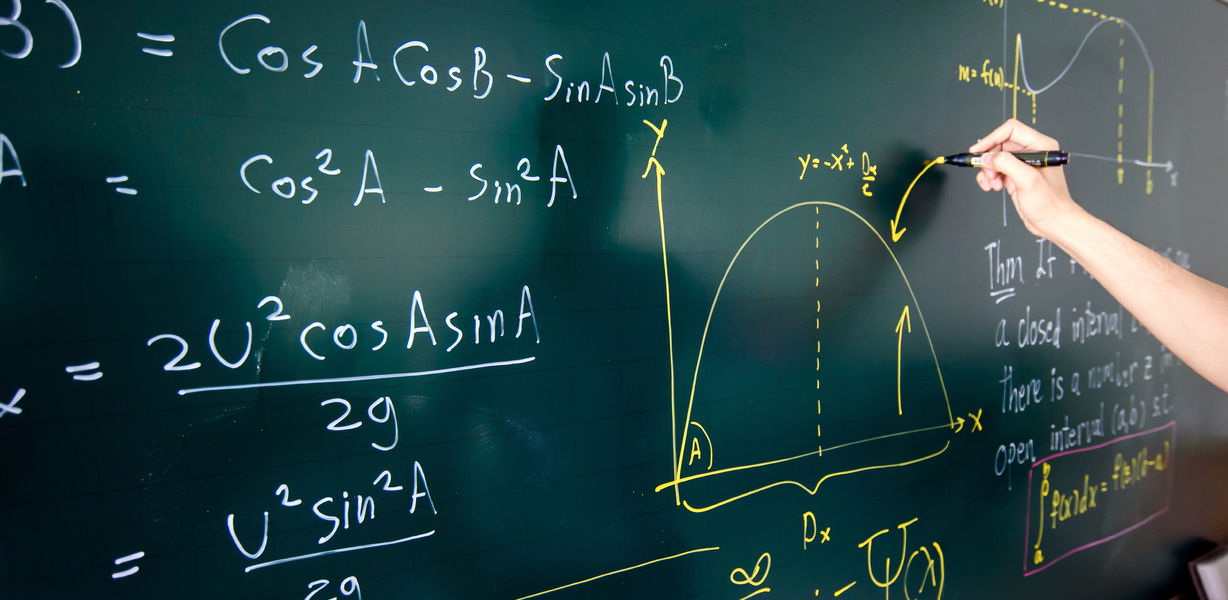 ) = Cos A CosB - SinAsinB
A = Cos² A - Sin² A
x = 2U² cosAsinA / 2g
= U² sin² A / 2g
Y
y = -x² +
A
X
Px
∞
Ψ(x)
m = f(u)
b
x
Thm If
a closed interval
there is a number z
open interval (a,b) s.t.
∫ₐᵇ f(x)dx = f(z)(b-a)